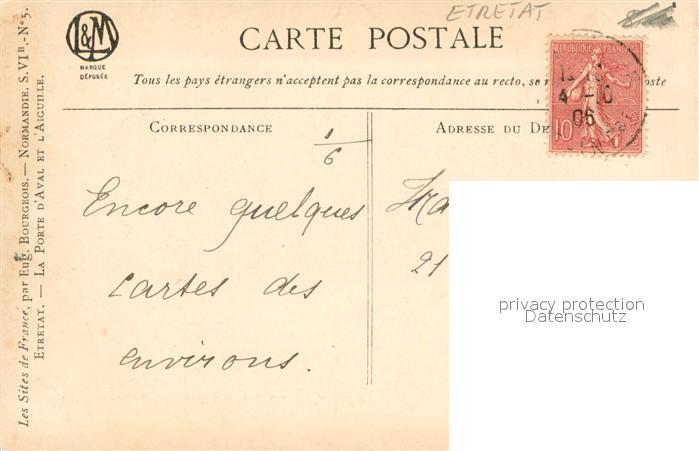 ETRETAT
L&M
MARQUE
DÉPOSÉE
CARTE POSTALE
Tous les pays étrangers n'acceptent pas la correspondance au recto, se
oste
CORRESPONDANCE
ADRESSE DU DE
1/6
REPUBLIQUE FRANÇAISE
4 -10
06
10
Encore quelques
cartes des
environs.
21
privacy protection
Datenschutz
Les Sites de France, par Eug. BOURGEOIS. — NORMANDIE. S. VIB. - N° 5.
ETRETAT. — LA PORTE D'AVAL ET L'AIGUILLE.